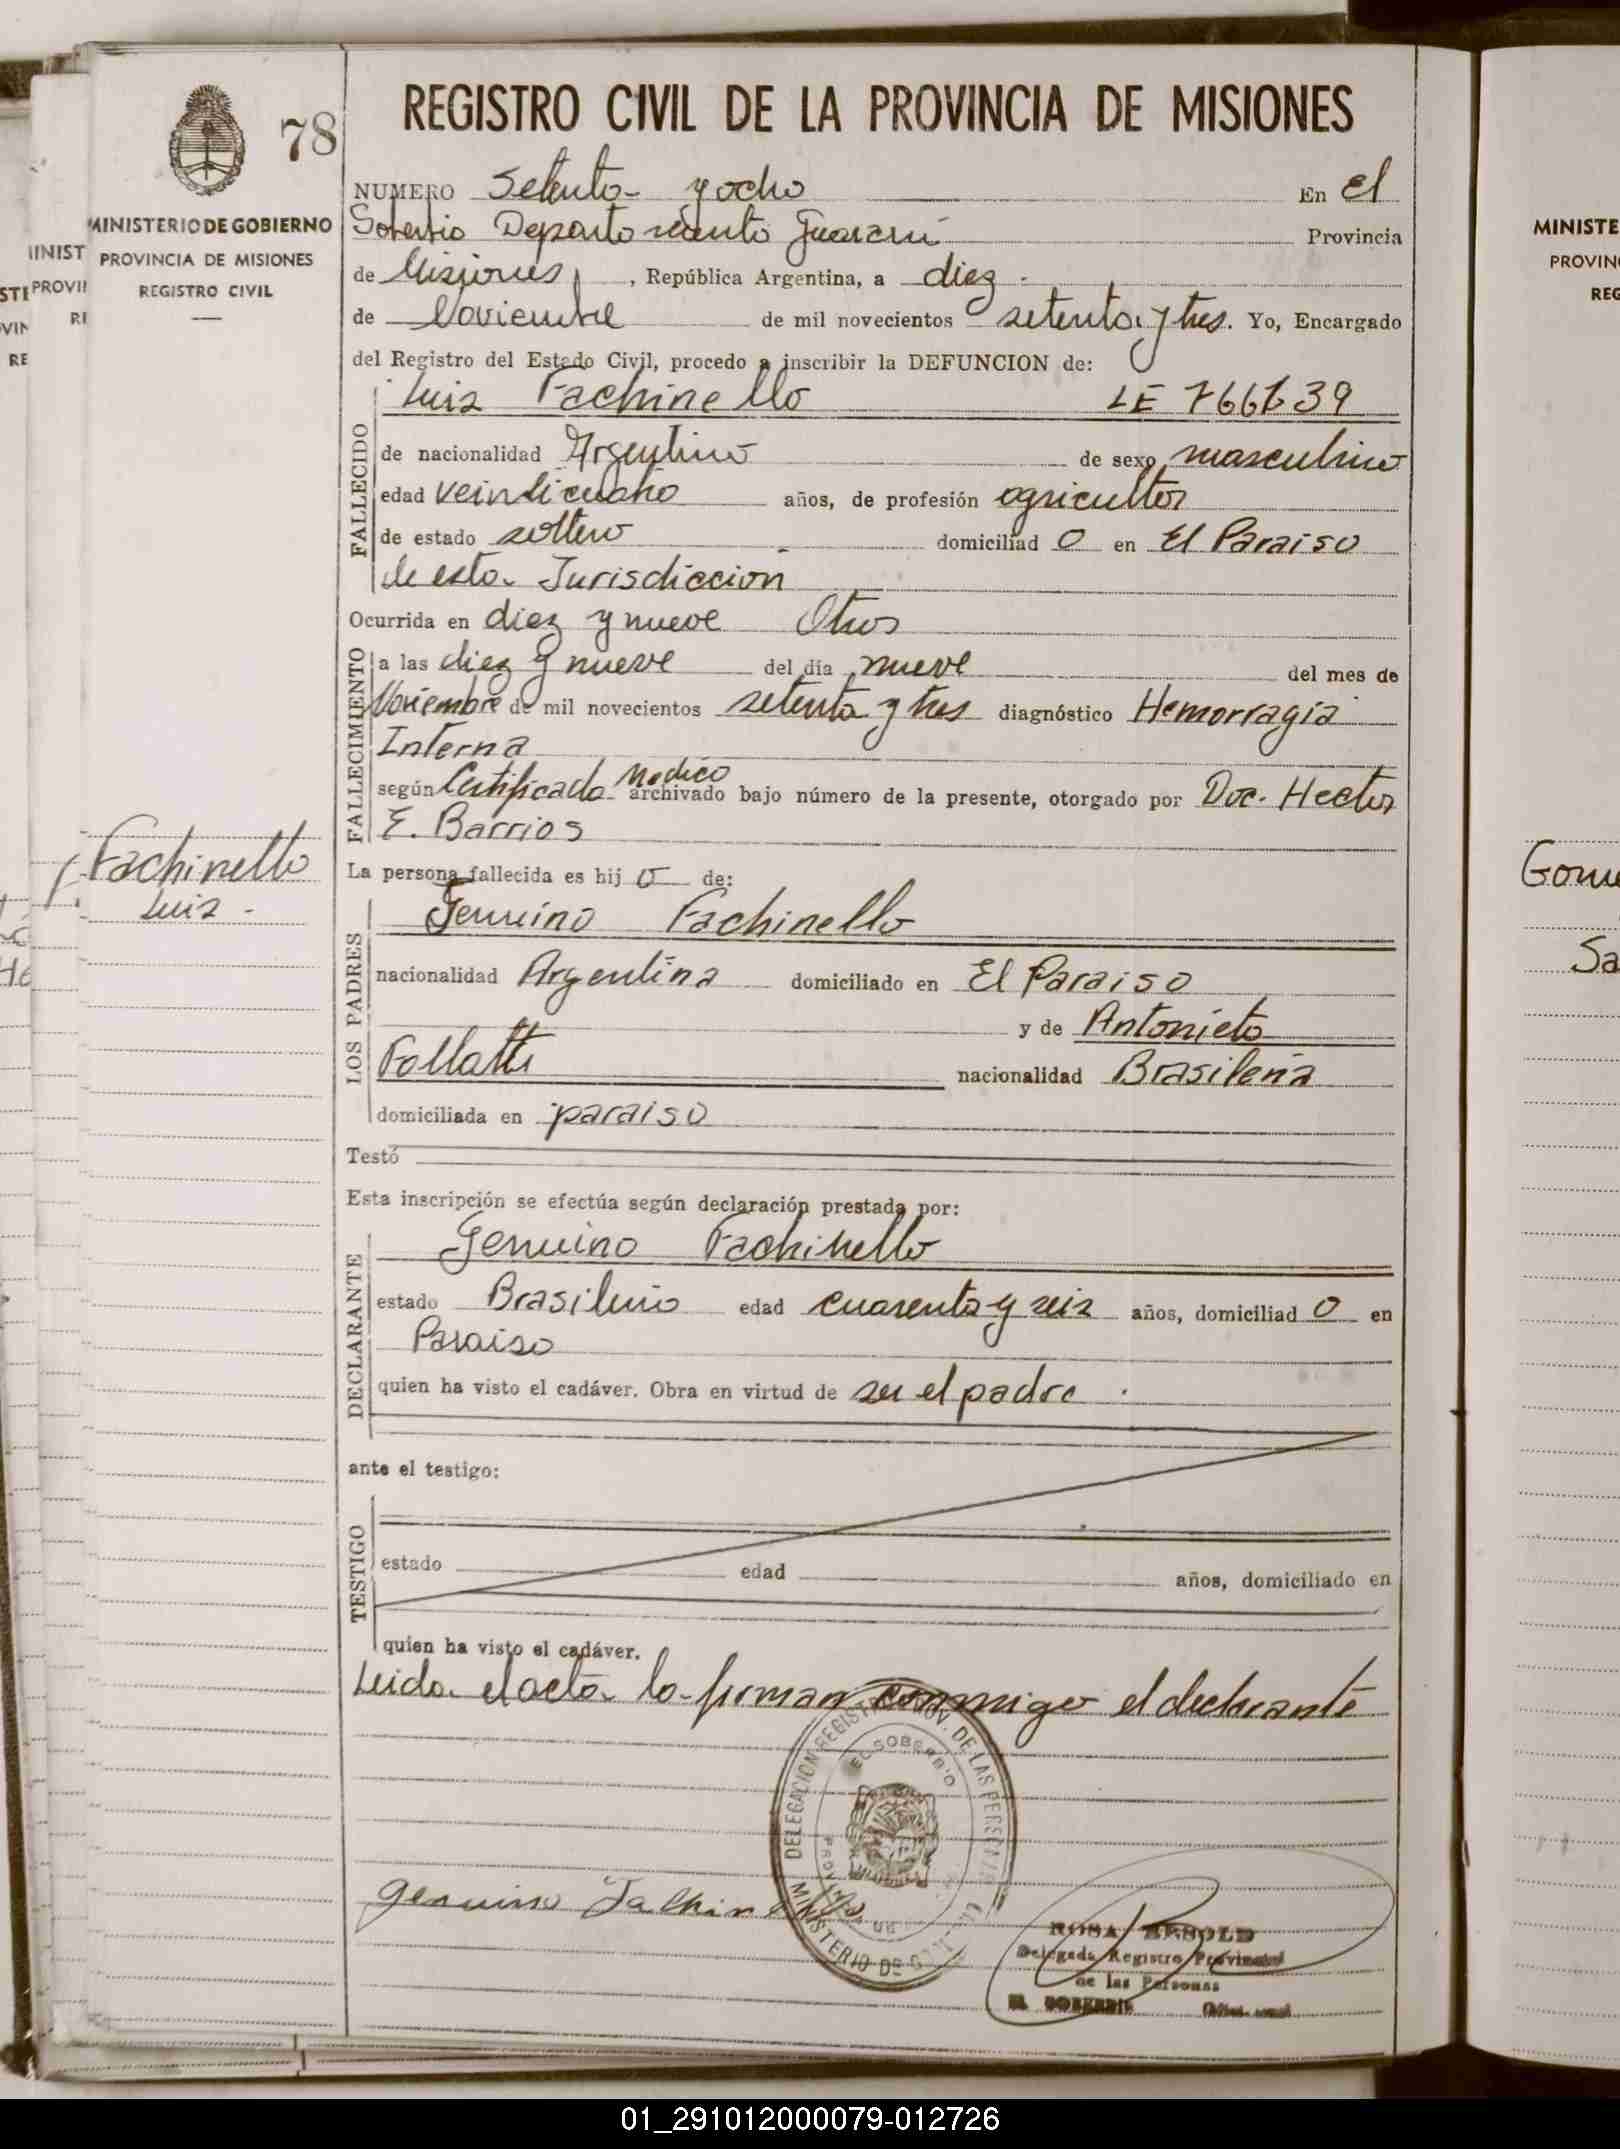 78
REGISTRO CIVIL DE LA PROVINCIA DE MISIONES
MINISTERIO DE GOBIERNO
PROVINCIA DE MISIONES
REGISTRO CIVIL
NUMERO Setenta y ocho En El
Soberbio Departamento Guarani Provincia
de Misiones, República Argentina, a diez
de Noviembre de mil novecientos setenta y tres. Yo, Encargado
del Registro del Estado Civil, procedo a inscribir la DEFUNCION de:
Luis Fachinello LE
FALLECIDO
de nacionalidad Argentino de sexo masculino
edad veinticuatro años, de profesión agricultor
de estado soltero domiciliad o en El Paraiso
de esta Jurisdiccion
Ocurrida en diez y nueve Otros
FALLECIMIENTO
a las diez y nueve del día nueve del mes de
Noviembre de mil novecientos setenta y tres diagnóstico Hemorragia
Interna
según Certificado Medico archivado bajo número de la presente, otorgado por Doc. Hector
E. Barrios
Fachinello
Luis -
La persona fallecida es hij o de:
LOS PADRES
Genuino Fachinello
nacionalidad Argentina domiciliado en El Paraiso
y de Antonieta
nacionalidad Brasileña
domiciliada en paraiso
Testó
Esta inscripción se efectúa según declaración prestada por:
DECLARANTE
Genuino Fachinello
estado Brasileño edad cuarenta y seis años, domiciliad o en
Paraiso
quien ha visto el cadáver. Obra en virtud de ser el padre.
ante el testigo:
TESTIGO
estado edad años, domiciliado en
quien ha visto el cadáver.
Leida el acta la firman conmigo el declarante
DELEGACION REGISTRO PROV. DE LAS PERSONAS
EL SOBERBIO
MINISTERIO DE
Genuino
ROSA BESOLD
Delegada Registro Provincial
de las Personas
EL SOBERBIO
MINISTE
PROVIN
REG
Gome
Sa
01_291012000079-012726